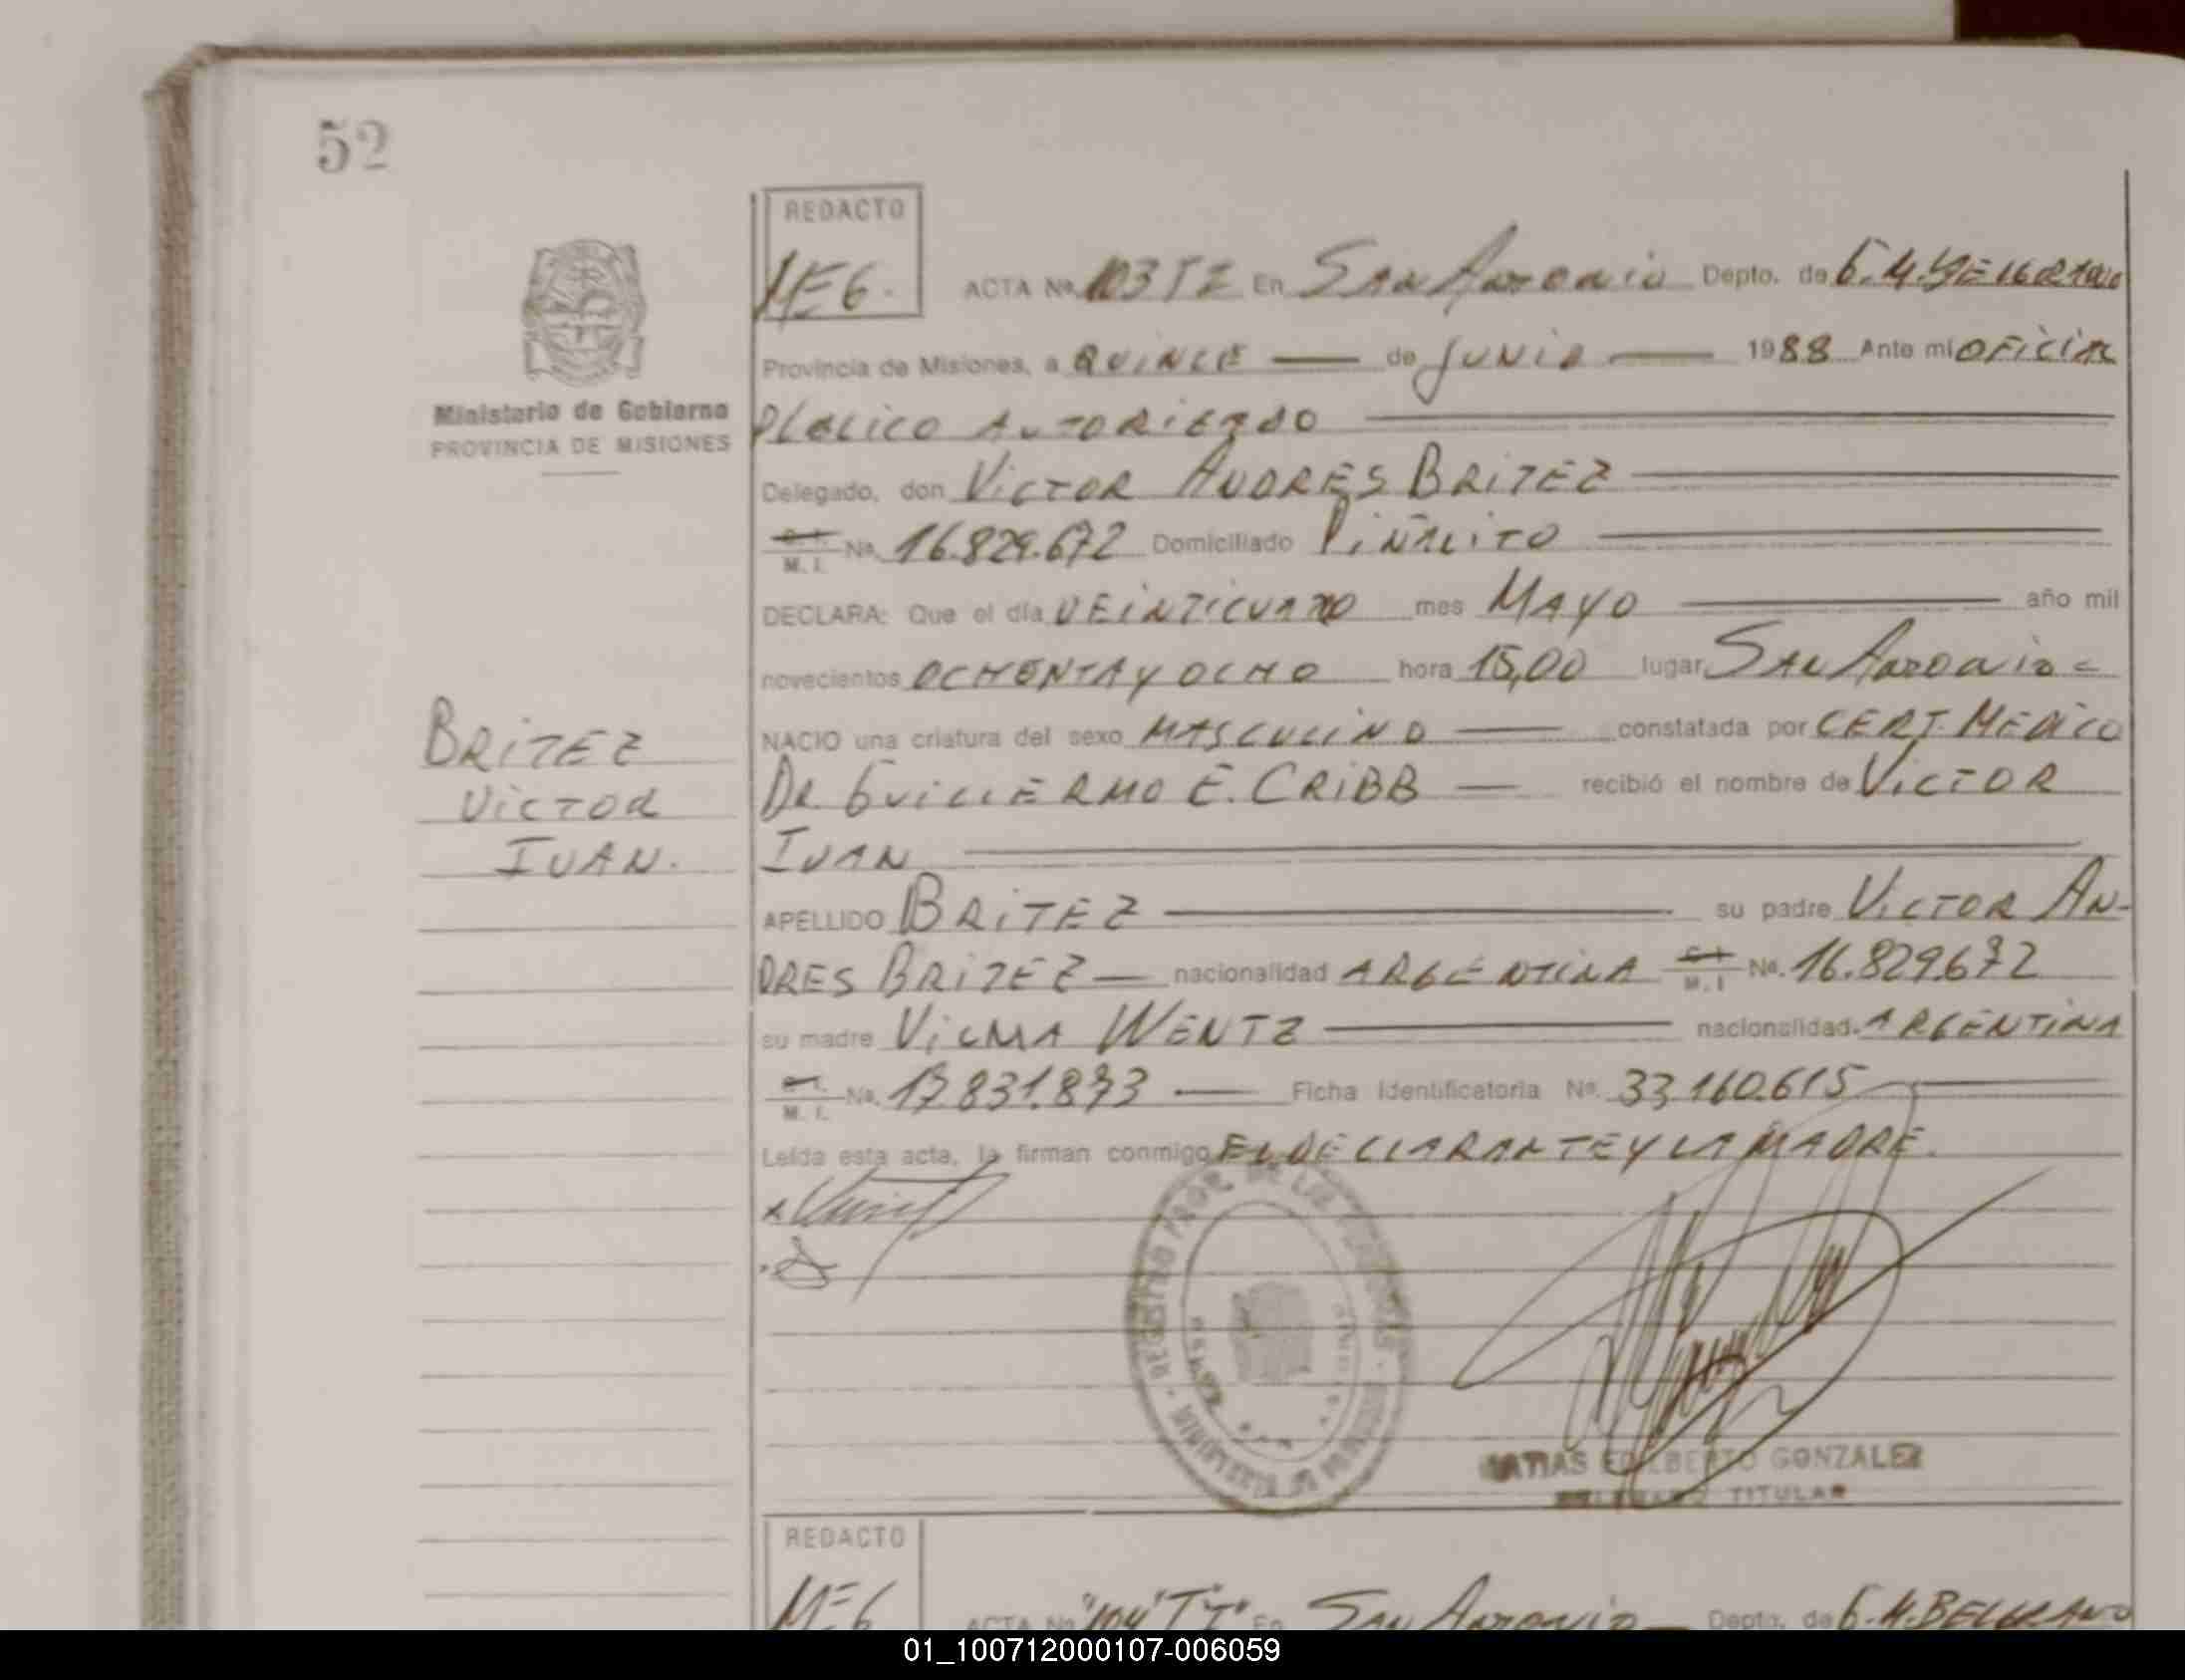 52
REDACTO
MEG.
ACTA Nº 103 TI En San Antonio Depto. de G. M. BELGRANO
Ministerio de Gobierno
PROVINCIA DE MISIONES
Provincia de Misiones, a QUINCE de JUNIO 1988 Ante mí OFICIAL
PUBLICO AUTORIZADO
Delegado, don VICTOR ANDRES BRITEZ
M. I. Nº 16.829.672 Domiciliado PIÑALITO
DECLARA: Que el día VEINTICUATRO mes MAYO año mil
novecientos OCHENTA Y OCHO hora 15,00 lugar San Antonio
NACIO una criatura del sexo MASCULINO constatada por CERT. MEDICO
DR GUILLERMO E. CRIBB recibió el nombre de VICTOR
IVAN
BRITEZ
VICTOR
IVAN.
APELLIDO BRITEZ su padre VICTOR AN-
DRES BRITEZ nacionalidad ARGENTINA M. I Nº. 16.829.672
su madre VILMA WENTZ nacionalidad ARGENTINA
M. I. Nº. 17.831.873 Ficha Identificatoria Nº. 33.160.615
Leída esta acta, la firman conmigo EL DECLARANTE Y LA MADRE.
MATIAS EDILBERTO GONZALEZ
DELEGADO TITULAR
REDACTO
MEG
ACTA Nº "104" "TI" En San Antonio Depto. de G. M. BELGRANO
01_100712000107-006059